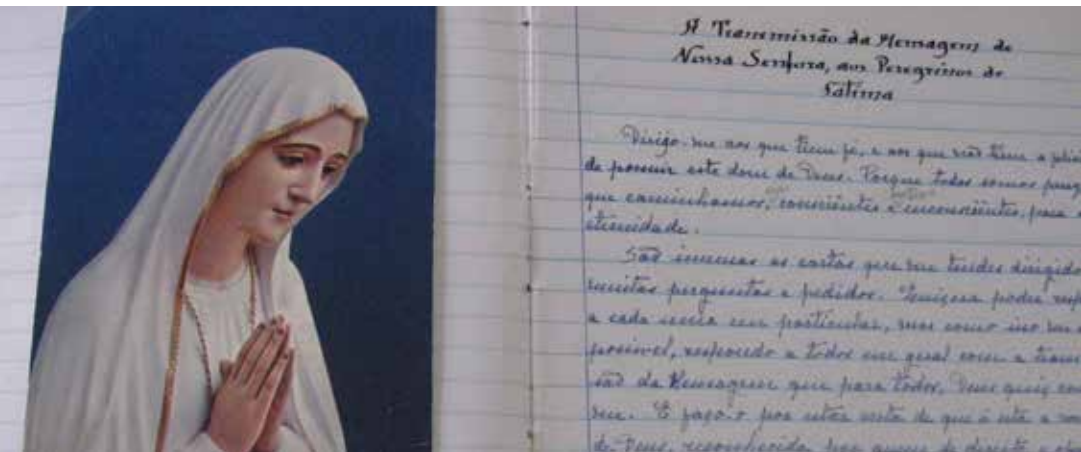 A Transmissão da Mensagem de
Nossa Senhora, aos Peregrinos de
Fátima
Dirijo-me aos que tiem fé, e aos que não tiem a
de possuir este dom de Deus. Porque todos somos
que caminhamos, conscientes e inconscientes, para
eternidade.
São imensas as cartas que me tendes dirigido
muitas perguntas e pedidos. poder
a cada uma em particular, mas como isso
possivel, respondo a todos em geral com a
são da Mensagem que para todos, Deus quis
me. E faço-o por estar certa de que é esta a
de Deus, reconhecida por quem de direito